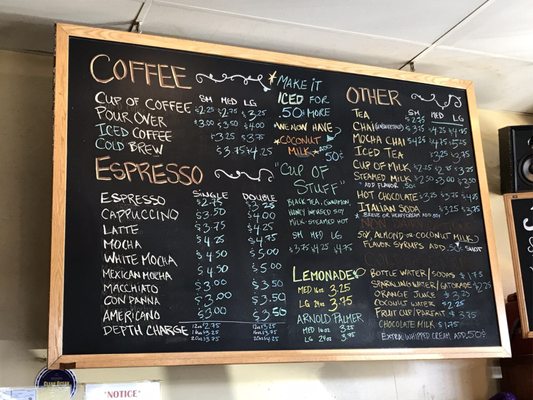 COFFEE
SM MED LG
CUP OF COFFEE $2.25 $2.75 $3.25
POUR OVER $3.00 $3.50 $4.00
ICED COFFEE $3.25 $3.75
COLD BREW $3.75 $4.25
ESPRESSO
SINGLE DOUBLE
ESPRESSO $2.75 $3.25
CAPPUCCINO $3.50 $4.00
LATTE $3.75 $4.25
MOCHA $4.25 $4.75
WHITE MOCHA $4.50 $5.00
MEXICAN MOCHA $4.50 $5.00
MACCHIATO $3.00 $3.50
CON PANNA $3.00 $3.50
AMERICANO $3.00 $3.50
DEPTH CHARGE
MAKE IT
ICED FOR
.50¢ MORE
WE NOW HAVE
COCONUT
MILK ADD
50¢
"CUP OF
STUFF"
BLACK TEA, CINNAMON,
HONEY
MILK STEAMED HOT
SM MED LG
$3.75 $4.25 $4.75
LEMONADE
MED 16oz 3.25
LG 24oz 3.75
ARNOLD PALMER
MED 16oz 3.25
LG 24oz 3.75
OTHER
SM MED LG
TEA $2.75
CHAI $3.75 $4.25 $4.75
MOCHA CHAI $4.25 $4.75 $5.25
ICED TEA $2.75 $3.25
CUP OF MILK $2.25 $2.75 $3.25
STEAMED MILK $2.50 $3.00 $3.50
"ADD FLAVOR .50"
HOT CHOCOLATE $3.25 $3.75 $4.25
ITALIAN SODA $2.75 $3.25 $3.75
SOY, ALMOND OR COCONUT MILK
FLAVOR SYRUPS ADD 50¢ SHOT
BOTTLE WATER/SODAS $1.75
SPARKLING WATER/GATORADE $2.25
ORANGE JUICE $3.25
COCONUT WATER $2.75
FRUIT CUP/PARFAIT $3.75
CHOCOLATE MILK $1.75
EXTRA WHIPPED CREAM ADD .50¢
"NOTICE"